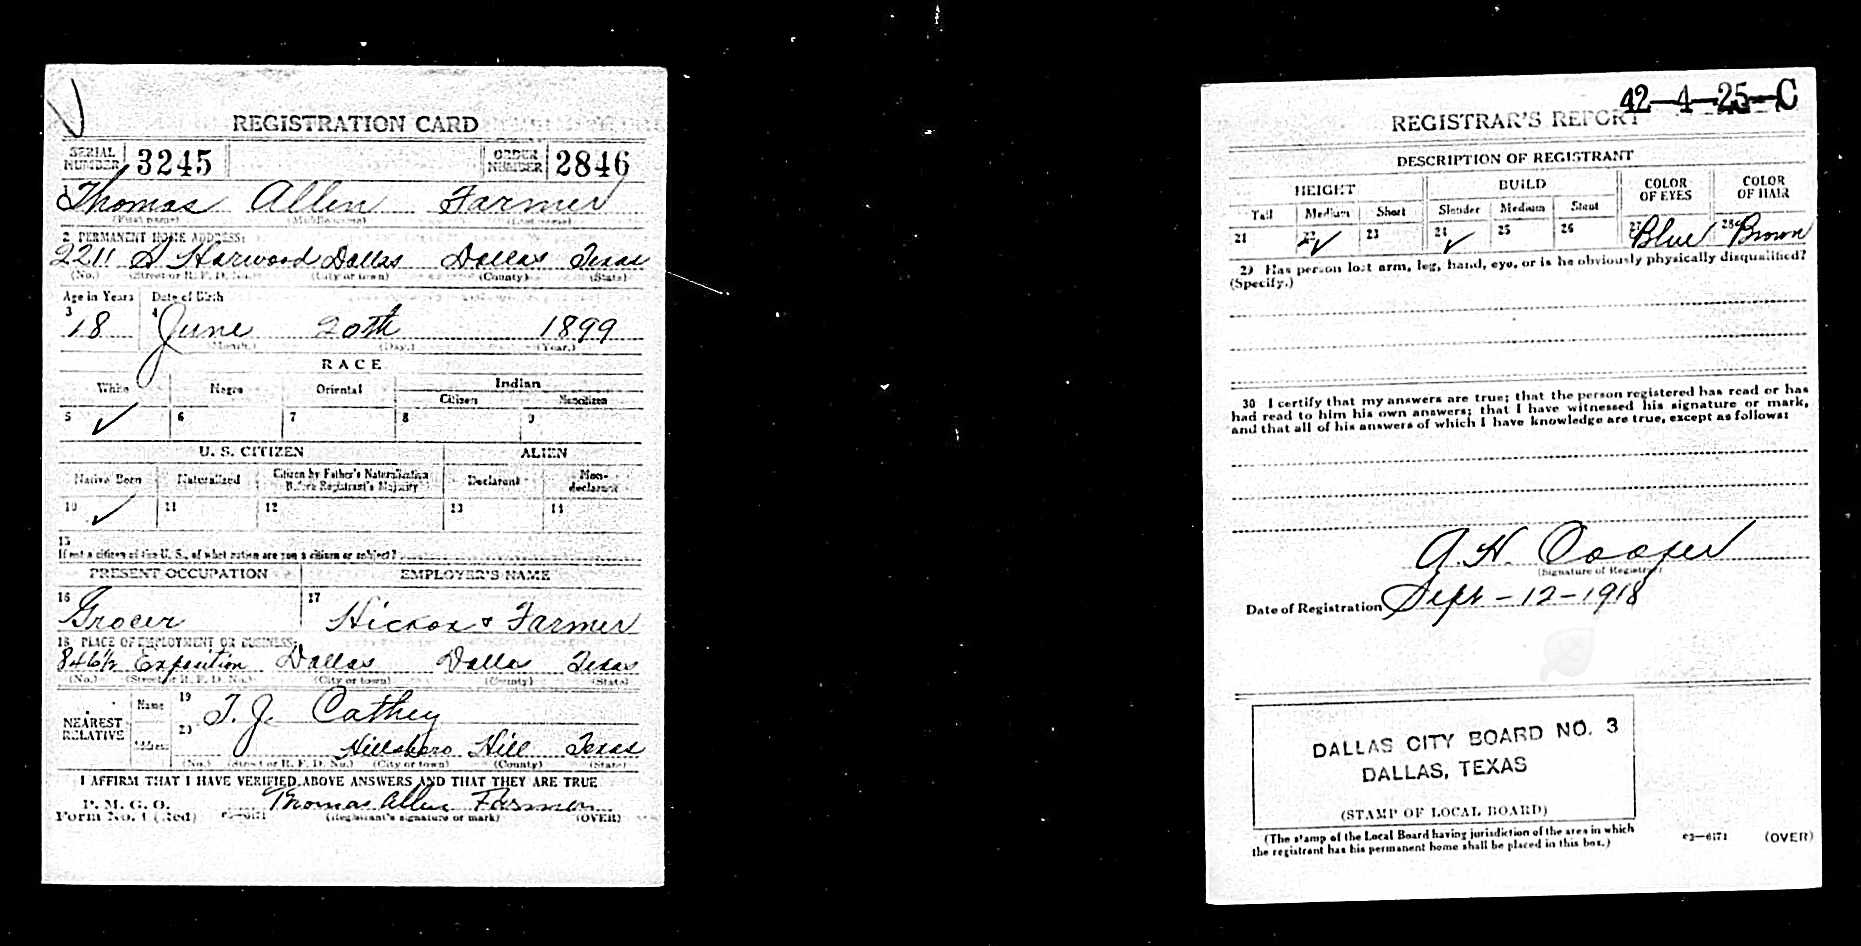 REGISTRATION CARD
SERIAL NUMBER 3245 ORDER NUMBER 2846
1 Thomas Allen Farmer
(First name) (Middle name) (Last name)
2 PERMANENT HOME ADDRESS:
2211 S Harwood Dallas Dallas Texas
(No.) (Street or R. F. D. No.) (City or town) (County) (State)
Age in Years Date of Birth
3 18 4 June 20th 1899
(Month.) (Day.) (Year.)
RACE
White Negro Oriental Indian
Citizen Noncitizen
5 ✓ 6 7 8 9
U. S. CITIZEN ALIEN
Native Born Naturalized Citizen by Father's Naturalization Before Registrant's Majority Declarant Non-declarant
10 ✓ 11 12 13 14
15
If not a citizen of the U. S., of what nation are you a citizen or subject?
PRESENT OCCUPATION EMPLOYER'S NAME
16 Grocer 17 Hickox & Farmer
18 PLACE OF EMPLOYMENT OR BUSINESS:
846½ Exposition Dallas Dallas Texas
(No.) (Street or R. F. D. No.) (City or town) (County) (State)
NEAREST RELATIVE Name 19 T. J. Cathey
Address 20 Hillsboro Hill Texas
(No.) (Street or R. F. D. No.) (City or town) (County) (State)
I AFFIRM THAT I HAVE VERIFIED ABOVE ANSWERS AND THAT THEY ARE TRUE
P. M. G. O.
Form No. 1 (Red) 03—6171 Thomas Allen Farmer
(Registrant's signature or mark) (OVER)
42-4-25-C
REGISTRAR'S REPORT
DESCRIPTION OF REGISTRANT
HEIGHT BUILD COLOR OF EYES COLOR OF HAIR
Tall Medium Short Slender Medium Stout
21 22 ✓ 23 24 ✓ 25 26 27 Blue 28 Brown
29 Has person lost arm, leg, hand, eye, or is he obviously physically disqualified?
(Specify.)
30 I certify that my answers are true; that the person registered has read or has
had read to him his own answers; that I have witnessed his signature or mark,
and that all of his answers of which I have knowledge are true, except as follows:
A. H. Cooper
(Signature of Registrar)
Date of Registration Sept - 12 - 1918
DALLAS CITY BOARD NO. 3
DALLAS, TEXAS
(STAMP OF LOCAL BOARD)
(The stamp of the Local Board having jurisdiction of the area in which
the registrant has his permanent home shall be placed in this box.)
03—6171 (OVER)